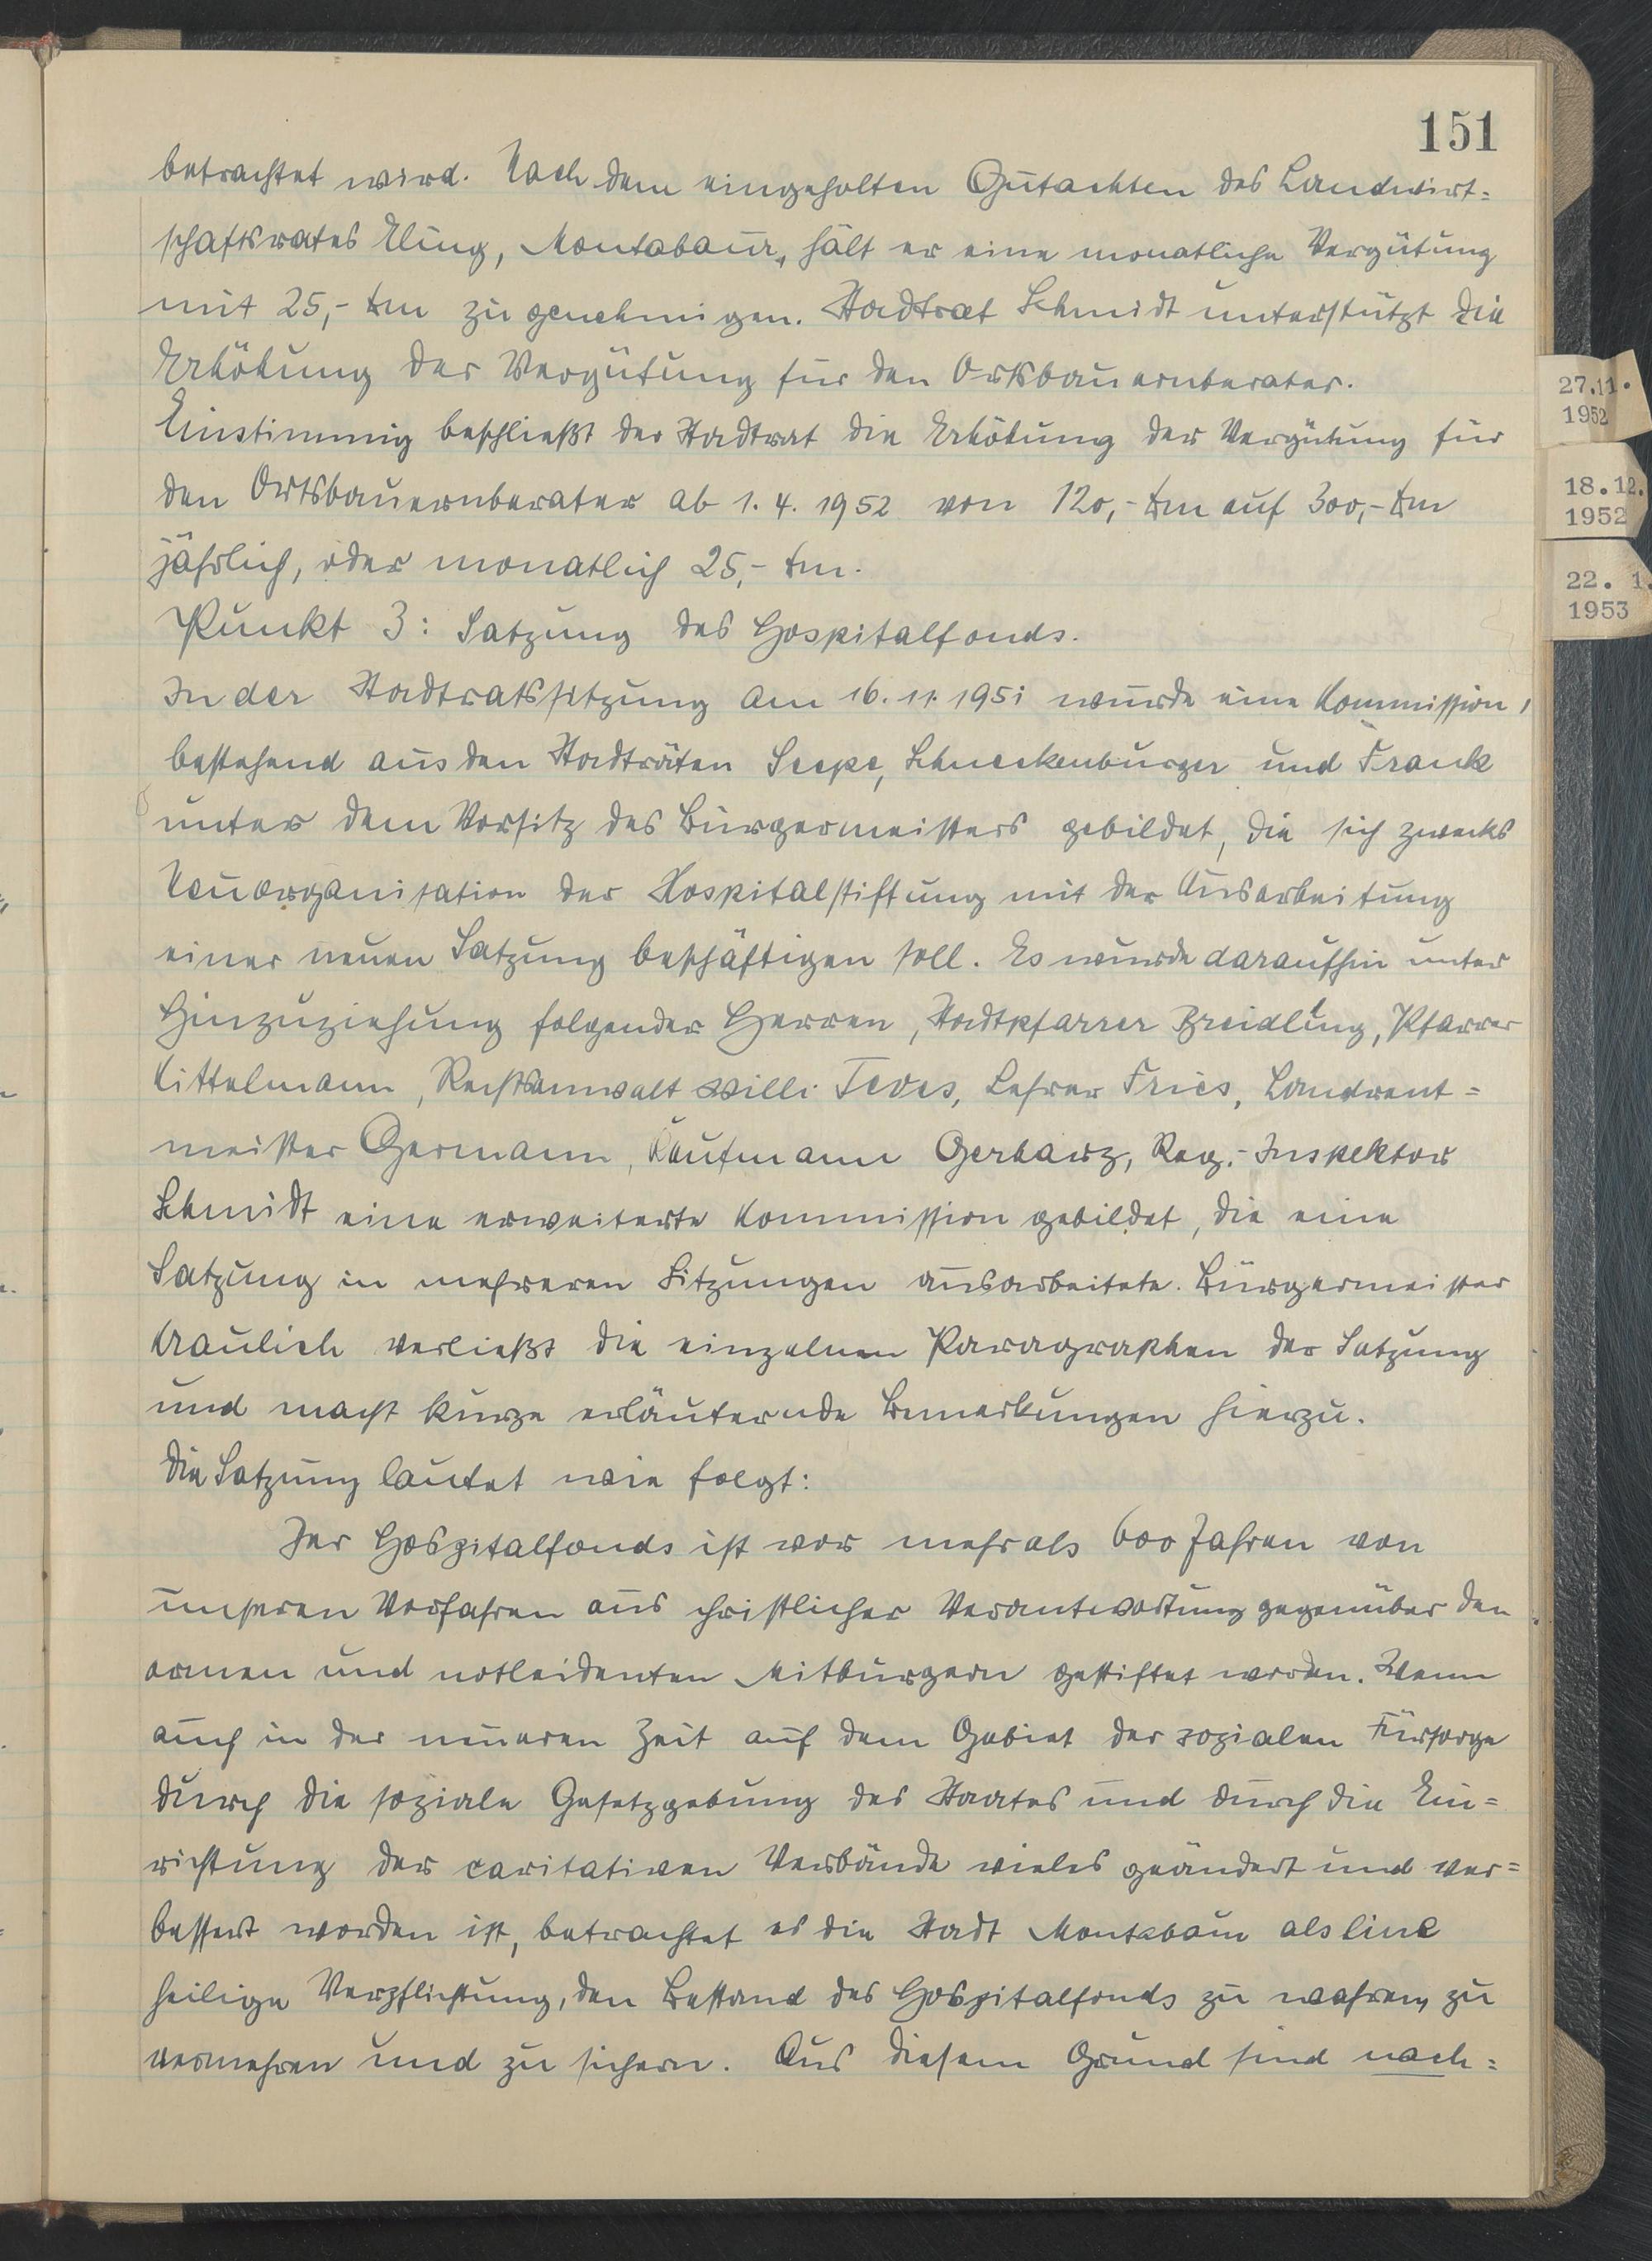 151
betrachtet wird. Nach dem eingeholten Gutachten des Landwirt=
schaftsrates Eling, Montabaur, hält er eine monatliche Vergütung
mit 25,- Dm zu genehmigen. Stadtrat Schmidt unterstützt die
Erhöhung der Vergütung für den Ortsbauernberater.
Einstimmig beschließt der Stadtrat die Erhöhung der Vergütung für
den Ortsbauernberater ab 1. 4. 1952 von 120,- Dm auf 300,- Dm
jährlich, oder monatlich 25,- Dm.
Punkt 3: Satzung des Hospitalfonds.
In der Stadtratssitzung am 16. 11. 1951 wurde eine Kommission,
bestehend aus den Stadträten Seepe, Schneckenburger und Frank
unter dem Vorsitz des Bürgermeisters gebildet, die sich zwecks
Neuorganisation der Hospitalstiftung mit der Ausarbeitung
einer neuen Satzung beschäftigen soll. Es wurde daraufhin unter
Hinzuziehung folgender Herren, Stadtpfarrer Breidling, Pfarrer
Kittelmann, Rechtsanwalt Willi Teves, Lehrer Fries, Landrent=
meister Germann, Kaufmann Gerharz, Reg.-Inspektor
Schmidt eine erweiterte Kommission gebildet, die eine
Satzung in mehreren Sitzungen ausarbeitete. Bürgermeister
Kraulich verließt die einzelnen Paragraphen der Satzung
und macht kurze erläuternde Bemerkungen hierzu.
Die Satzung lautet wie folgt:
Der Hospitalfonds ist vor mehr als 600 Jahren von
unseren Vorfahren aus christlicher Verantwortung gegenüber den
armen und notleidenten Mitbürgern gestiftet worden. Wenn
auch in der neueren Zeit auf dem Gebiet der sozialen Fürsorge
durch die soziale Gesetzgebung des Staates und durch die Ein=
richtung der caritativen Verbände vieles geändert und ver=
bessert worden ist, betrachtet es die Stadt Montabaur als eine
heilige Verpflichtung, den Bestand des Hospitalfonds zu wahren, zu
vermehren und zu sichern. Aus diesem Grund sind nach=
27.11.
1952
18.12.
1952
22. 1.
1953